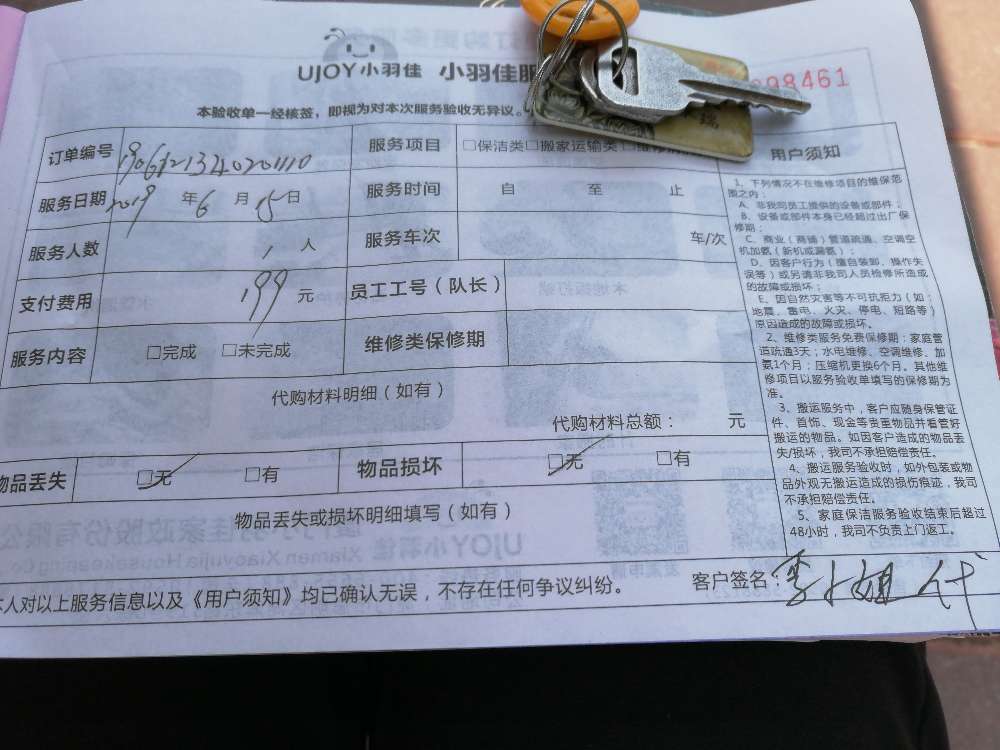 UJOY小羽佳 小羽佳服
98461
本验收单一经核签，即视为对本次服务验收无异议。
订单编号 服务项目 □保洁类 □搬家运输类 用户须知
服务日期 2019 年 6 月 15 日 服务时间 自 至 止
服务人数 1 人 服务车次 车/次
支付费用 199 元 员工工号（队长）
服务内容 □完成 □未完成 维修类保修期
代购材料明细（如有）
代购材料总额： 元
物品丢失 □无 □有 物品损坏 □无 □有
物品丢失或损坏明细填写（如有）
本人对以上服务信息以及《用户须知》均已确认无误，不存在任何争议纠纷。 客户签名：李小姐代
1、下列情况不在维修项目的维保范
围之内：
A、非我司员工提供的设备或部件；
B、设备或部件本身已经超过出厂保
修期；
C、商业（商铺）管道疏通、空调空
机加氨（新机或漏氨）；
D、因客户行为（擅自装卸、操作失
误等）或另请非我司人员检修所造成
的故障或损坏；
E、因自然灾害等不可抗拒力（如：
地震、雷电、火灾、停电、短路等）
原因造成的故障或损坏。
2、维修类服务免费保修期：家庭管
道疏通3天；水电维修、空调维修、加
氨1个月；压缩机更换6个月。其他维
修项目以服务验收单填写的保修期为
准。
3、搬运服务中，客户应随身保管证
件、首饰、现金等贵重物品并看管好
搬运的物品。如因客户造成的物品丢
失/损坏，我司不承担赔偿责任。
4、搬运服务验收时，如外包装或物
品外观无搬运造成的损伤痕迹，我司
不承担赔偿责任。
5、家庭保洁服务验收结束后超过
48小时，我司不负责上门返工。